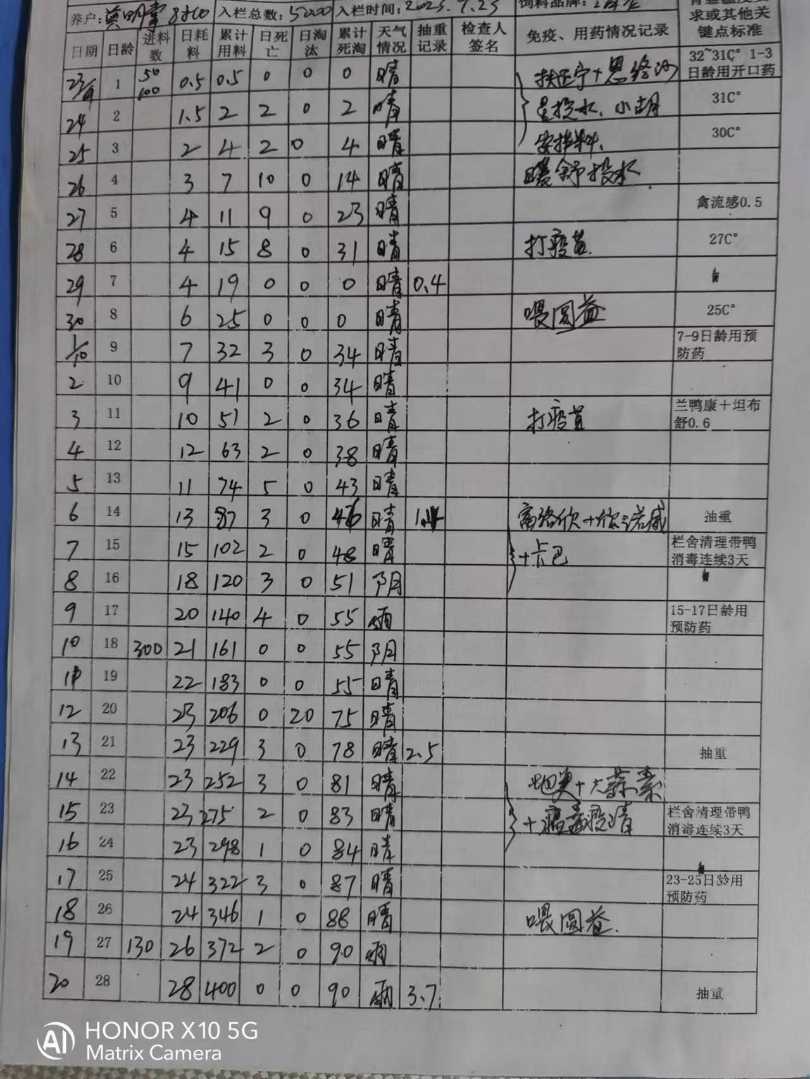 养户: 8860 入栏总数: 5200 入栏时间: 2023.9.23 饲料品牌:
日期 日龄 进料数 日耗料 累计用料 日死亡 日淘汰 累计死淘 天气情况 抽重记录 检查人签名 免疫、用药情况记录 求或其他关键点标准
23/9 1 50 100 0.5 0.5 0 0 0 晴 32~31C° 1-3日龄用开口药
24 2 1.5 2 2 0 2 晴 31C°
25 3 2 4 2 0 4 晴 30C°
26 4 3 7 10 0 14 晴 舒投水
27 5 4 11 9 0 23 晴 禽流感0.5
28 6 4 15 8 0 31 晴 打疫苗 27C°
29 7 4 19 0 0 0 晴 0.4
30 8 6 25 0 0 0 晴 喂圆益 25C°
1/10 9 7 32 3 0 34 晴 7-9日龄用预防药
2 10 9 41 0 0 34 晴
3 11 10 51 2 0 36 晴 打疫苗 兰鸭康+坦布舒0.6
4 12 12 63 2 0 38 晴
5 13 11 74 5 0 43 晴
6 14 13 87 3 0 46 晴 抽重
7 15 15 102 2 0 48 晴 +卡巴 栏舍清理带鸭消毒连续3天
8 16 18 120 3 0 51 阴
9 17 20 140 4 0 55 雨 15-17日龄用预防药
10 18 300 21 161 0 0 55 阴
11 19 22 183 0 0 55 晴
12 20 23 206 0 20 75 晴
13 21 23 229 3 0 78 晴 2.5 抽重
14 22 23 252 3 0 81 晴 +大蒜素
15 23 23 275 2 0 83 晴 栏舍清理带鸭消毒连续3天
16 24 23 298 1 0 84 晴
17 25 24 322 3 0 87 晴 23-25日龄用预防药
18 26 24 346 1 0 88 晴 喂圆益.
19 27 130 26 372 2 0 90 雨
20 28 28 400 0 0 90 雨 3.7 抽重
AI HONOR X10 5G
Matrix Camera